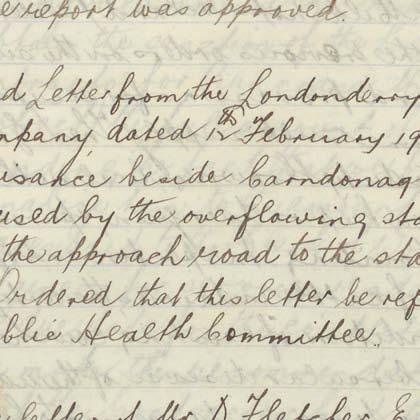 e report was approved.
d Letter from the Londonderry
mpany dated 12th February 19
isance beside Carndonag
used by the overflowing sto
the approach road to the sta
Ordered that this letter be ref
blic Health Committee.
letter Mr D Fletcher